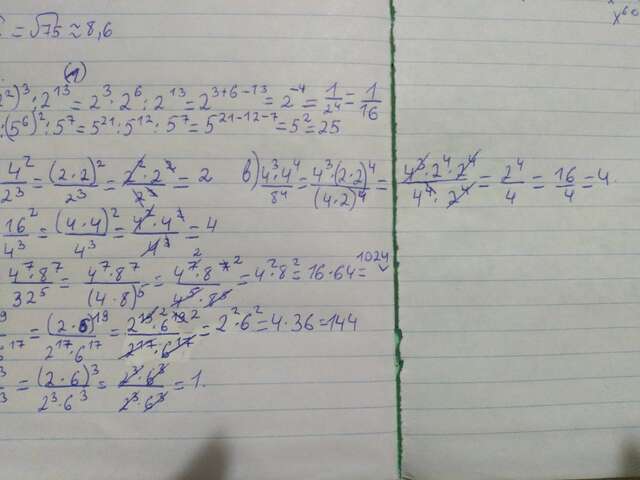 = √75 ≈ 8,6
x⁶
(1)
2²)³ : 2¹³ = 2³ · 2⁶ : 2¹³ = 2³⁺⁶⁻¹³ = 2⁻⁴ = 1/2⁴ = 1/16
: (5⁶)² : 5⁷ = 5²¹ : 5¹² : 5⁷ = 5²¹⁻¹²⁻⁷ = 5² = 25
4²/2³ = (2 · 2)²/2³ = 2² · 2²/2³ = 2 в) 4³ · 4⁴/8⁴ = 4³ · (2 · 2)⁴/(4 · 2)⁴ = 4³ · 2⁴ · 2⁴/4⁴ · 2⁴ = 2⁴/4 = 16/4 = 4.
16²/4³ = (4 · 4)²/4³ = 4² · 4²/4³ = 4
4⁷ · 8⁷/32⁵ = 4⁷ · 8⁷/(4 · 8)⁵ = 4⁷ ² · 8⁷ ²/4⁵ · 8⁵ = 4² · 8² = 16 · 64 = 1024
¹⁹/6¹⁷ = (2 · 6)¹⁹/2¹⁷ · 6¹⁷ = 2¹⁹ ² · 6¹⁹ ²/2¹⁷ · 6¹⁷ = 2² · 6² = 4 · 36 = 144
³/³ = (2 · 6)³/2³ · 6³ = 2³ · 6³/2³ · 6³ = 1.